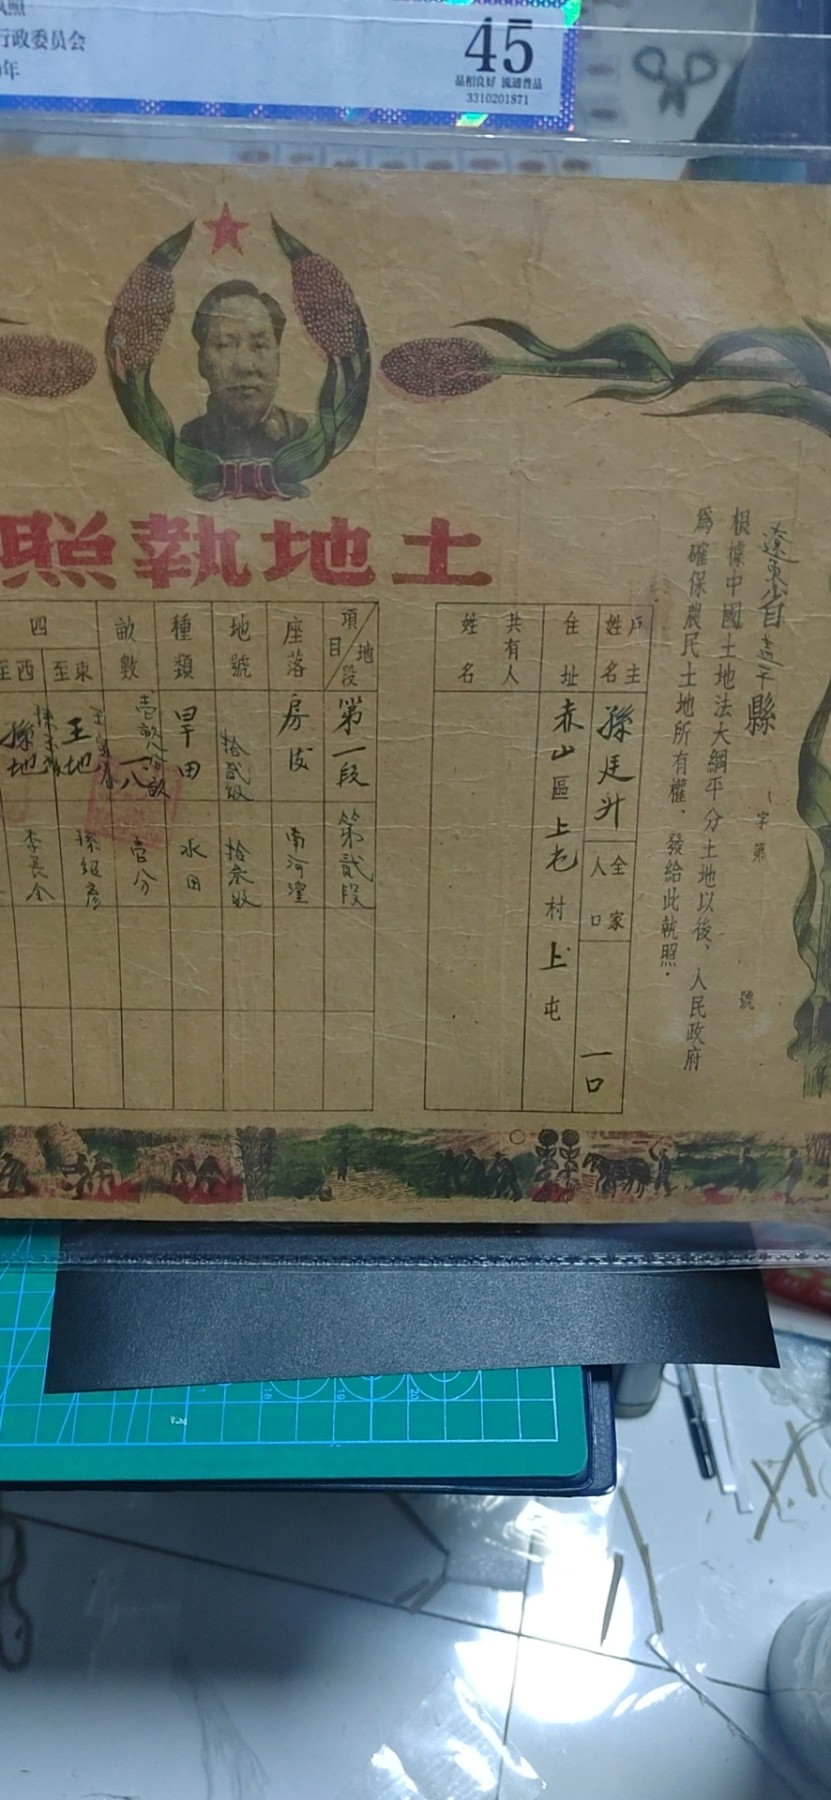 执照
行政委员会
年
45
品相良好 流通普品
3310201871
土地執照
遼東省
縣
字第
號
根據中國土地法大綱平分土地以後、人民政府
爲確保農民土地所有權、發給此執照.
戶主姓名
孫廷升
全家人口
一口
住址
赤山區上屯村上屯
共有人姓名
項目 地段
第一段
第貳段
座落
房後
南河
地號
拾貳
拾叁
種類
旱田
水田
畝數
一八畝
壹分
四
東至
王地
孫紹彥
西至
孫地
李長全
18
19
20